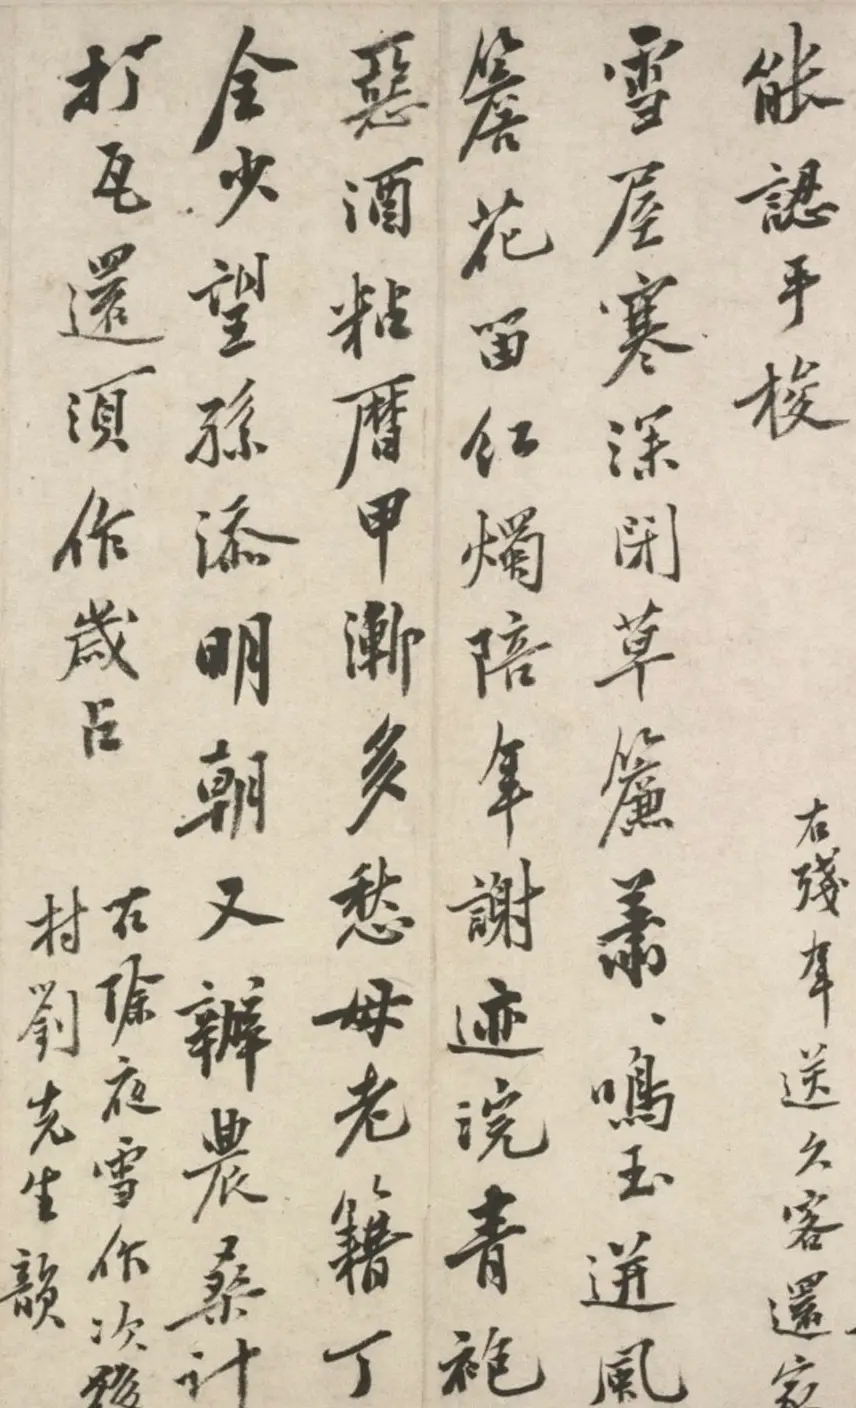 能認手梭
右殘年送久客還家
雪屋寒深閉草簾蕭、鳴玉迸風
簷花留紅燭陪年謝迹浣青袍
惡酒粘曆甲漸多愁母老籍丁
全少望孫添明朝又辦農桑計
打瓦還須作歲占
右除夜雪作次後
村劉先生韻